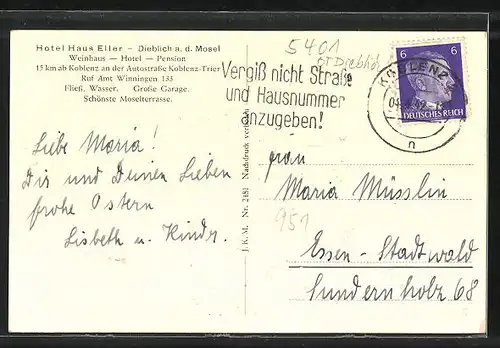 Hotel Haus Eller – Dieblich a. d. Mosel
Weinhaus — Hotel — Pension
15 km ab Koblenz an der Autostraße Koblenz-Trier
Ruf Amt Winningen 133
Fließ. Wasser. Große Garage.
Schönste Moselterrasse.
5401
OT Dieblich
Vergiß nicht Straße
und Hausnummer
anzugeben!
KOBLENZ
n
6 6
DEUTSCHES REICH
Liebe Maria!
Dir und Deinen Lieben
frohe Ostern
Lisbeth u. Kinder.
J. K. M. Nr. 2481 Nachdruck verboten
Frau
Maria Müsslin
951
Essen-Stadtwald
Sundernholz 68